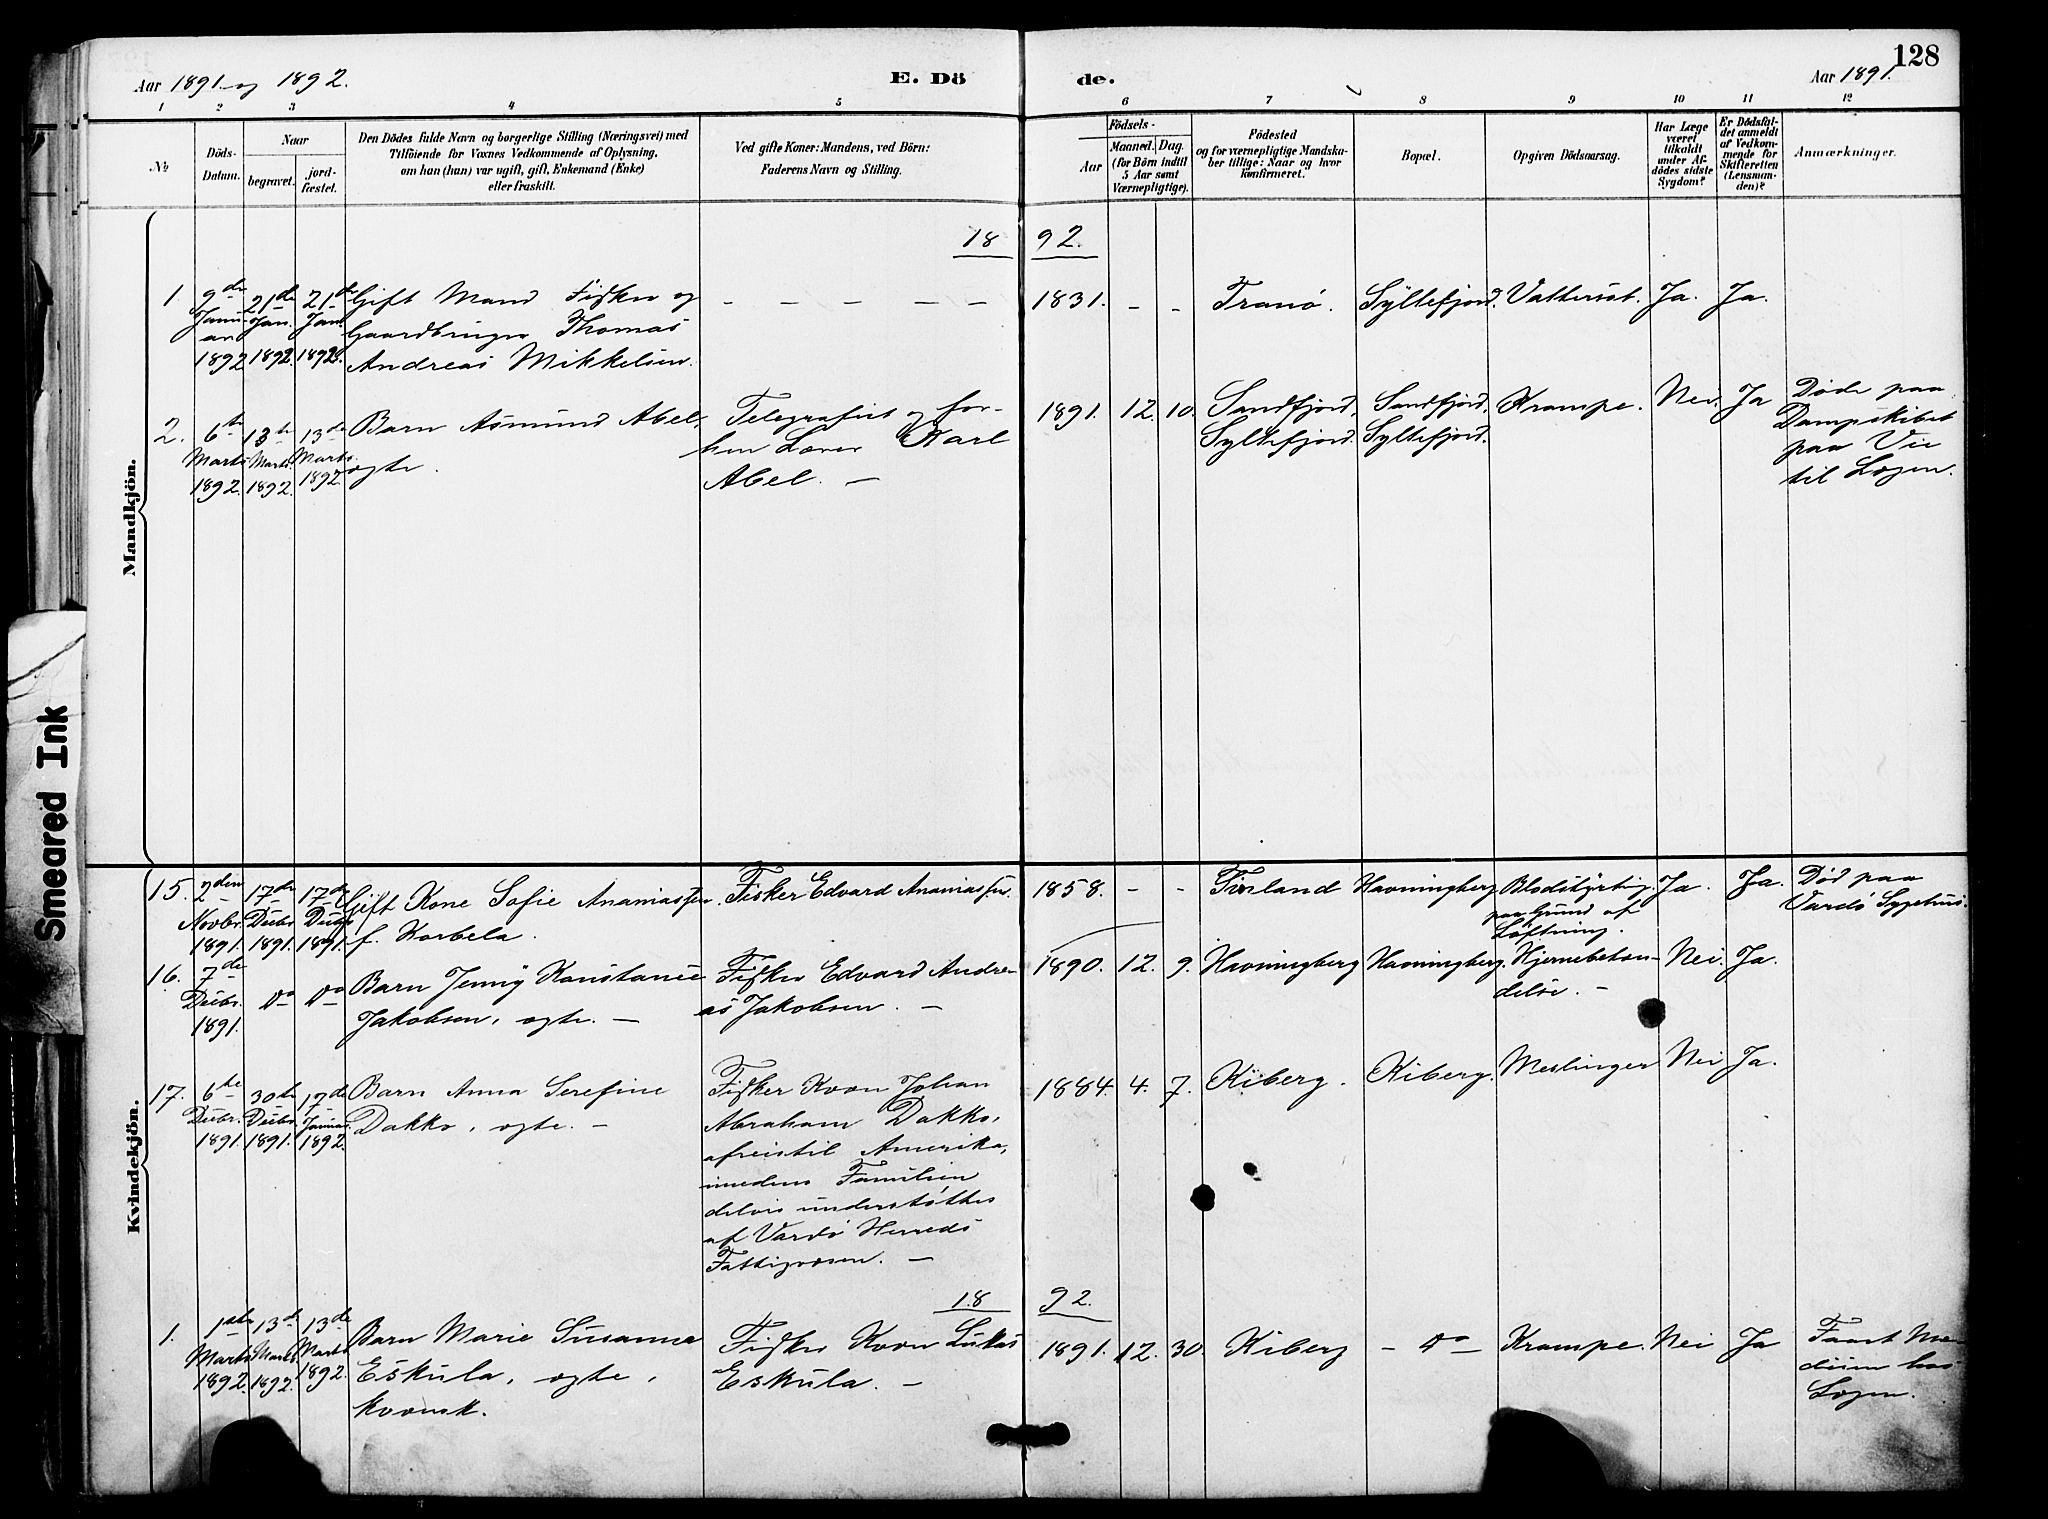 128
Aar 1891 og 1892.
E. Dö
de.
Aar 1891.
1 2 3 4 5 6 7 8 9 10 11 12
No
Döds-
Datum.
Naar
begravet.
jord-
fæstet.
Den Dödes fulde Navn og borgerlige Stilling (Næringsvei) med
Tilföiende for Voxnes Vedkommende af Oplysning,
om han (hun) var ugift, gift, Enkemand (Enke)
eller fraskilt.
Ved gifte Koner: Mandens, ved Börn:
Faderens Navn og Stilling.
Födsels-
Aar
Maaned. Dag.
(for Börn indtil
5 Aar samt
Værnepligtige).
Födested
og for værnepligtige Mandska-
ber tillige: Naar og hvor
konfirmeret.
Bopæl.
Opgiven Dödsaarsag.
Har Læge
været
tilkaldt
under Af-
dödes sidste
Sygdom?
Er Dödsfal-
det anmeldt
af Vedkom-
mende for
Skifteretten
(Lensman-
den)?
Anmærkninger.
Mandkjön.
18 92.
1 9de
Janu-
ar
1892
21de
Jan.
1892.
21de
Jan.
1892.
Gift Mand Fisker og
Gaardbruger Thomas
Andreas Mikkelsen.
– – – – –
1831. – –
Tranö.
Syltefjord.
Vattersot.
Ja. Ja.
2. 6te
Marts
1892.
13de
Marts.
1892.
13de
Marts.
1892.
Barn Asmund Abel,
ægte.
Telegrafist og for-
hen Lærer Karl
Abel. –
1891. 12. 10.
Sandfjord,
Syltefjord.
Sandfjord,
Syltefjord.
Krampe.
Nei. Ja
Døde paa
Dampskibet
paa Vei
til Lægen.
Kvindekjön.
15. 2den
Novbr.
1891.
17de
Decbr.
1891.
17de
Decbr.
1891.
Gift Kone Sofie Ananiassen.
f. Korbela.
Fisker Edvard Ananiassen.
1858. – –
Finland
Havningberg
Blodstyrtng
paa Grund af
Løftning.
Ja. Ja.
Død paa
Vardö Sygehus.
16. 7de
Decbr.
1891.
do do
Barn Jenny Konstance
Jakobsen, ægte. –
Fisker Edvard Andre-
as Jakobsen. –
1890. 12. 9.
Havningberg
Havningberg.
Hjernebetæn-
delse. –
Nei. Ja.
17. 6te
Decbr.
1891.
30te
Decbr.
1891.
17de
Januar
1892.
Barn Anna Serefine
Dakko, ægte. –
Fisker Kvæn Johan
Abraham Dakko,
afreist til Amerika,
imedens Familien
delvis understøttes
af Vardö Herreds
Fattigvæsen. –
1884. 4. 7.
Kiberg.
Kiberg.
Meslinger
Nei Ja.
18 92.
1. 1ste
Marts
1892.
13de
Marts.
1892.
13de
Marts
1892.
Barn Marie Susanna
Eskula, ægte,
kvænsk.
Fisker Kvæn Lukas
Eskula. –
1891. 12. 30.
Kiberg
– do –
Krampe.
Nei Ja
Faaet Me-
disin hos
Lægen.
Smeared Ink